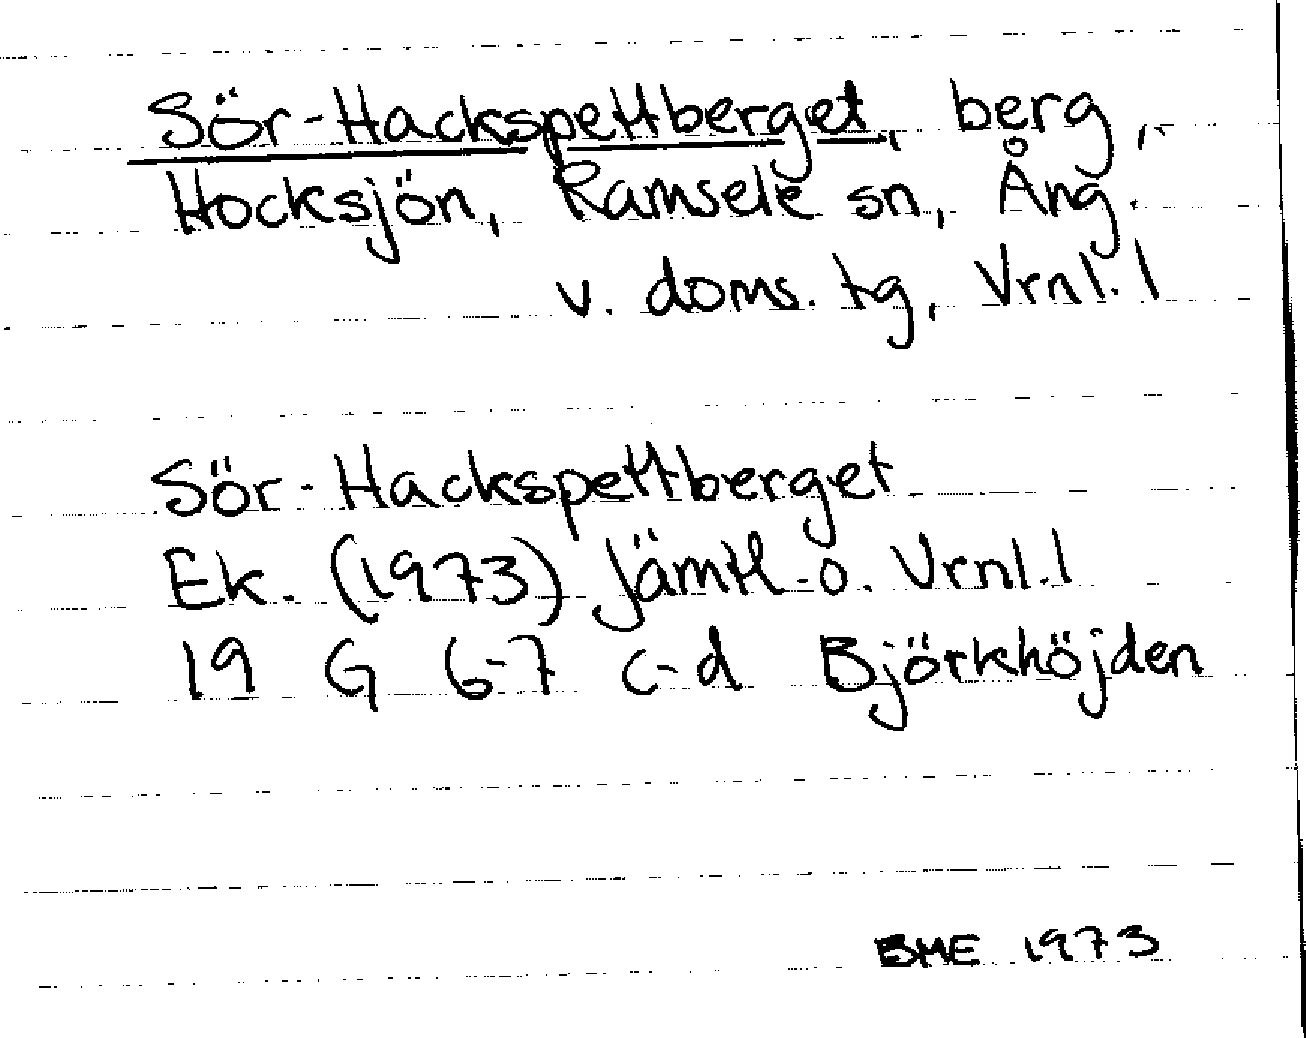 Sör-Hackspettberget, berg,
Hocksjön, Ramsele sn, Ång.
v. doms. tg, Vrnl. l
Sör-Hackspettberget
Ek. (1973) Jämtl. o. Vrnl. l
19 G 6-7 c-d Björkhöjden
BME 1973